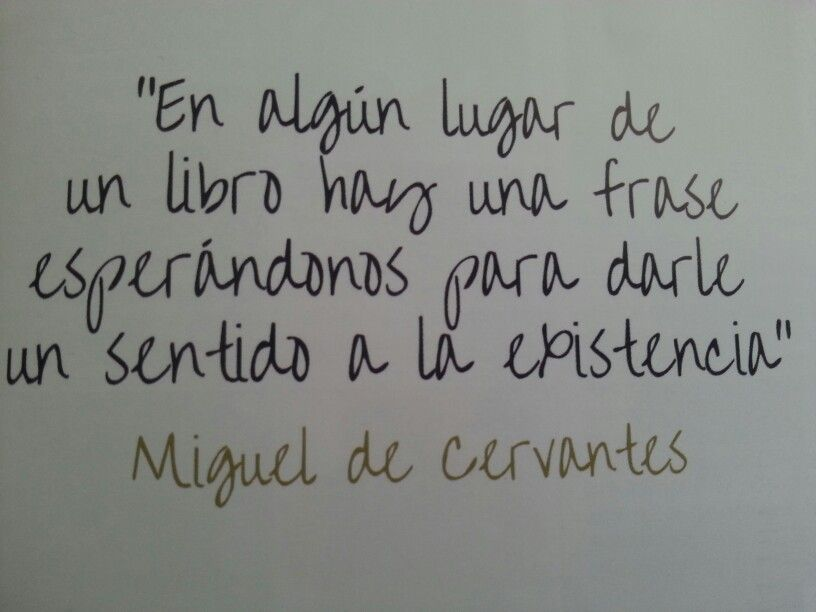 "En algún lugar de
un libro hay una frase
esperándonos para darle
un sentido a la existencia"
Miguel de Cervantes